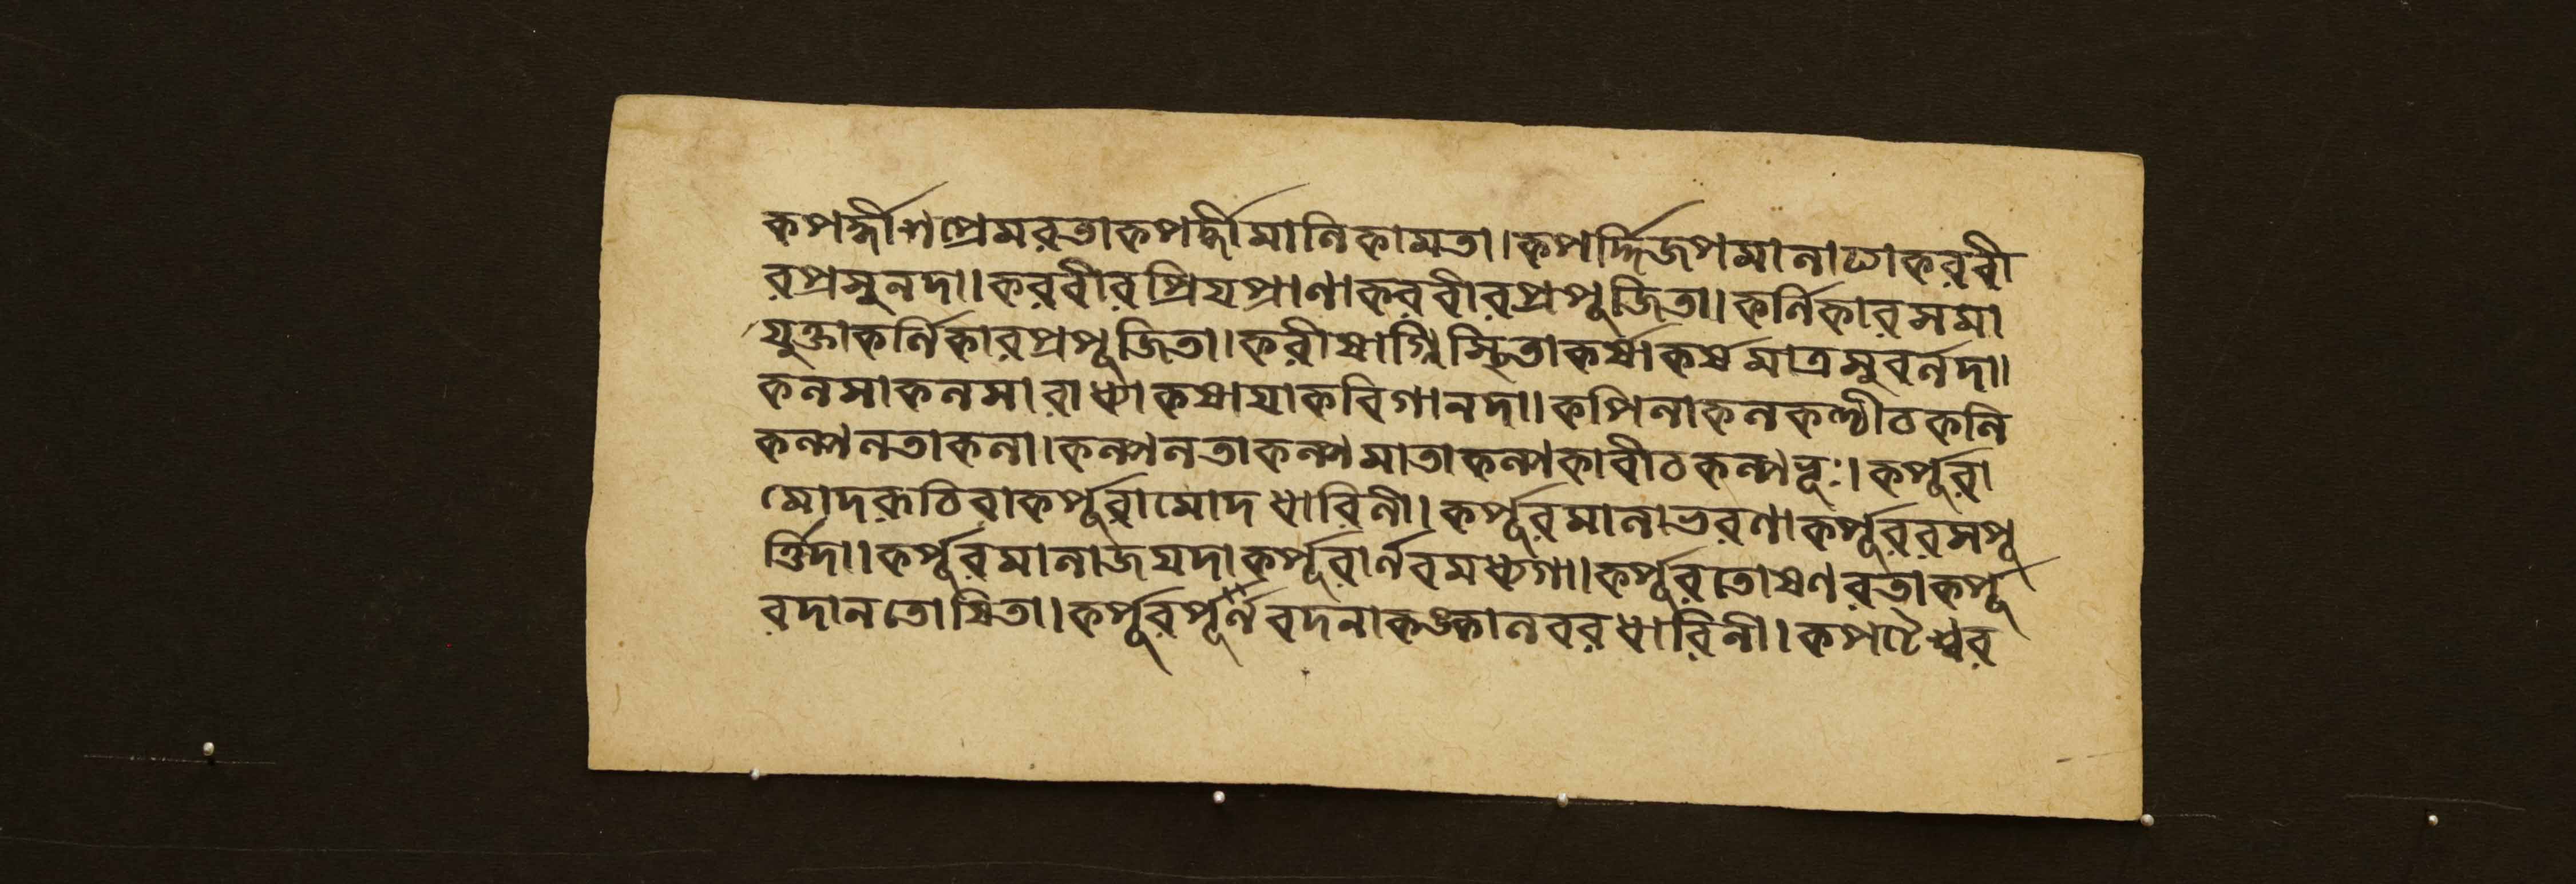 কপর্দ্দীশপ্রেমরতাকপর্দ্দীমানিকামতা।কপর্দ্দিজপমানাঢ্যাকরবী
রপ্রসুনদা।করবীরপ্রিয়প্রাণাকরবীরপ্রপুজিতা।কর্নিকারসমা
যুক্তাকর্নিকারপ্রপূজিতা।করীষাগ্নিস্থিতাকর্ষাকর্ষমাত্রসুবর্নদা।
কনসাকনসারাধ্যাকষায়াকবিগানদা।কপিনাকনকণ্ঠীঠকনি
কল্পনতাকনা।কল্পনতাকল্পমাতাকল্পকাবীঠকল্পভূঃ।কর্পূরা
মোদরুচিরাকর্পূরামোদধারিনী।কর্পূরমানাভরণাকর্পূররসপূ
র্ত্তিদা।কর্পূরমানাজয়দাকর্পূরার্নবমধ্যগা।কর্পূরতোষণরতাকর্পূ
রদানতোষিতা।কর্পূরপূর্ণবদনাকঙ্কানবরধারিনী।কপটেশ্বর